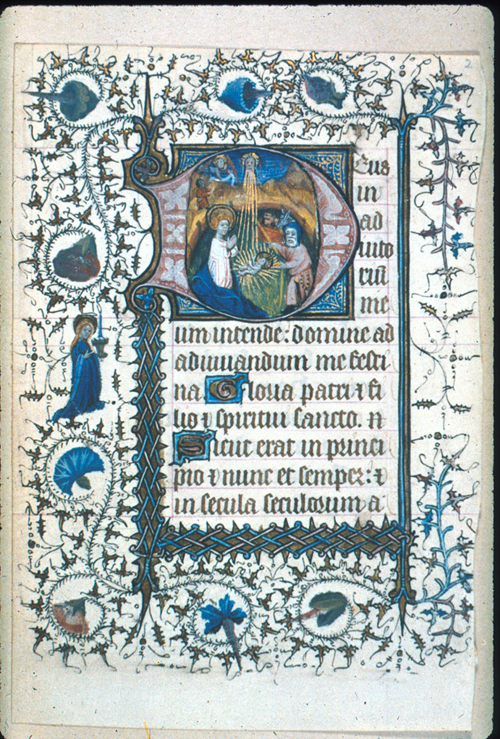 2
Deus
in
ad
iuto
riū
me
um intende: domine ad
adiuuandum me festi
na Gloria patri ⁊ fi
lio ⁊ spiritui sancto. n
Sicut erat in princi
pio ⁊ nunc et semper: ⁊
in secula seculorum a